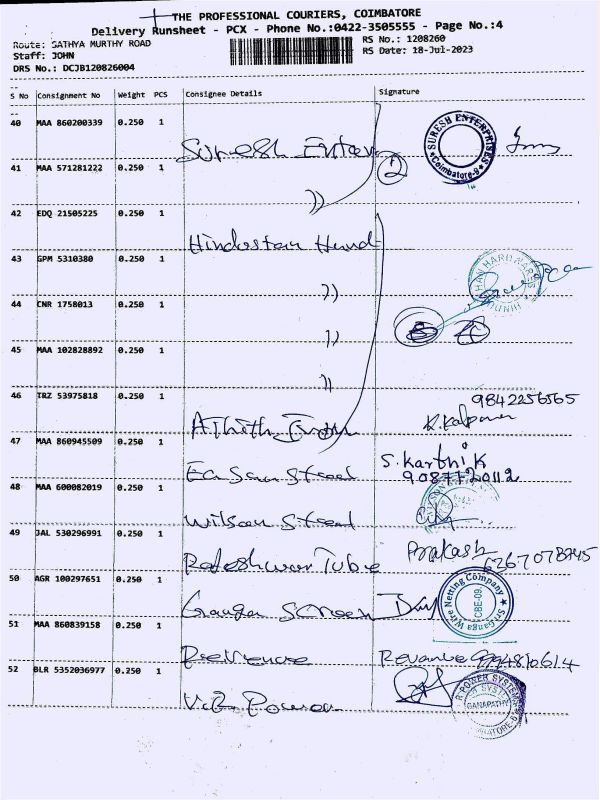 THE PROFESSIONAL COURIERS, COIMBATORE
Delivery Runsheet - PCX - Phone No.:0422-3505555 - Page No.:4
Route: SATHYA MURTHY ROAD RS No.: 1208260
Staff: JOHN RS Date: 18-Jul-2023
DRS No.: DCJB120826004
S No Consignment No Weight PCS Consignee Details Signature
40 MAA 860200339 0.250 1
Suresh SURESH ENTERPRISES Coimbatore-9
41 MAA 571281222 0.250 1 2
))
42 EDQ 21505225 0.250 1
Hindustan Hard
43 GPM 5310380 0.250 1
))
44 CNR 1758013 0.250 1
))
45 MAA 102828892 0.250 1
))
46 TRZ 53975818 0.250 1 9842256565
Athith
47 MAA 860945509 0.250 1 S.Karthik
Steel 9087720112
48 MAA 600082019 0.250 1
Wilson Steel
49 JAL 530296991 0.250 1 Prakash
Rajeshwari Tube
50 AGR 100297651 0.250 1
Ganga Screen Sri Ganga Wire Netting Company CBE-09
51 MAA 860839158 0.250 1
52 BLR 5352036977 0.250 1
Power R-POWER SYSTEMS GANAPATHY